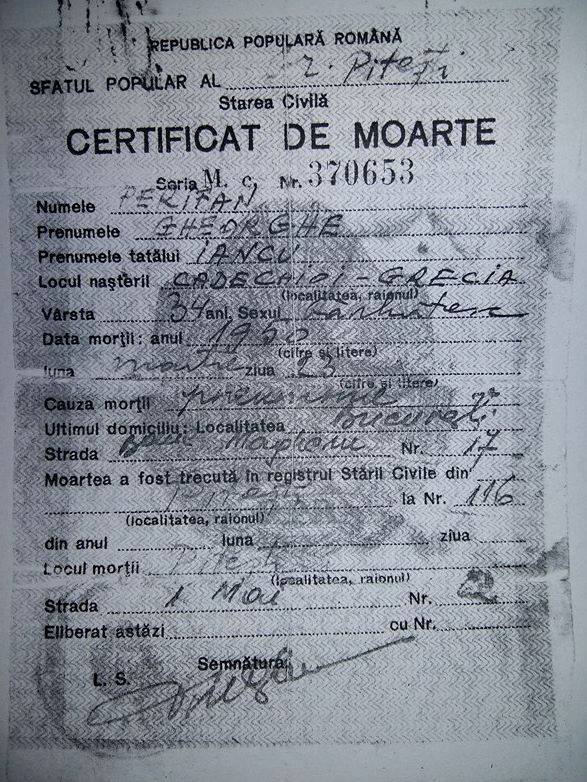 REPUBLICA POPULARĂ ROMÂNĂ
SFATUL POPULAR AL Or. Pitești
Starea Civilă
CERTIFICAT DE MOARTE
Seria M. c. Nr. 370653
Numele PERIFAN
Prenumele GHEORGHE
Prenumele tatălui IANCU
Locul nașterii CADECHIOI - GRECIA
(localitatea, raionul)
Vârsta 34 ani. Sexul bărbătesc
Data morții: anul 1950
(cifre și litere)
luna martie ziua 23
(cifre și litere)
Cauza morții pneumonie
Ultimul domiciliu: Localitatea București
Strada Magheru Nr. 17
Moartea a fost trecută în registrul Stării Civile din
Pitești la Nr. 116
(localitatea, raionul)
din anul luna ziua
Locul morții Pitești
(localitatea, raionul)
Strada 1 Mai Nr. 2
Eliberat astăzi cu Nr.
Semnătura,
L. S.